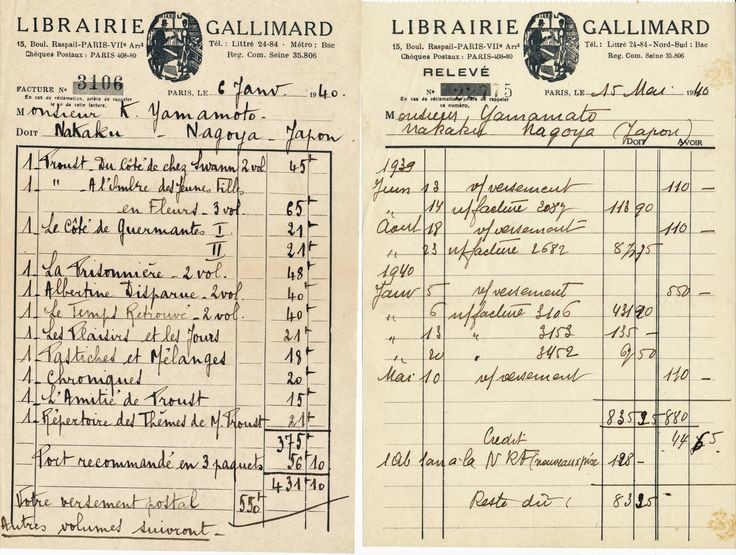 LIBRAIRIE GALLIMARD
15, Boul. Raspail-PARIS-VIIᵉ Arrᵗ
Tél.: Littré 24-84 · Métro: Bac
Chèques Postaux: PARIS 408-80
Reg. Com. Seine 35.806
FACTURE Nº 3106
PARIS, LE 6 Janv 1940.
En cas de réclamation, prière de rappeler
le nº de cette facture,
Monsieur K. Yamamoto.
DOIT Nakaku - Nagoya - Japon
1_ Proust_ Du Côté de chez Swann 2 vol 45ᶠ
1_ " A l'Ombre des Jeunes Filles
en Fleurs_ 3 vol. 65ᶠ
1_ Le Côté de Guermantes I 21ᶠ
II 21ᶠ
1_ La Prisonnière_ 2 vol. 48ᶠ
1_ Albertine Disparue_ 2 vol. 40ᶠ
1_ Le Temps Retrouvé_ 2 vol. 40ᶠ
1_ Les Plaisirs et les Jours 21ᶠ
1_ Pastiches et Mélanges 18ᶠ
1_ Chroniques 20ᶠ
1_ L'Amitié de Proust 15ᶠ
1_ Répertoire des Thèmes de M. Proust 21ᶠ
375ᶠ
Port recommandé en 3 paquets 56ᶠ10
431ᶠ10
Votre versement postal 550ᶠ
Autres volumes suivront_
LIBRAIRIE GALLIMARD
15, Boul. Raspail-PARIS-VIIᵉ Arrᵗ
Tél.: Littré 24-84-Nord-Sud: Bac
Chèques Postaux: PARIS 408-80
Reg. Com. Seine 35.806
RELEVÉ
Nº
PARIS, LE 15 Mai 1940
En cas de réclamation, prière de rappeler
ce numéro,
Monsieur Yamamato
Nakaku Nagoya (Japon)
DOIT AVOIR
1939
Juin 13 v/versement 110 —
" 14 n/facture 2087 113 90
Aout 18 v/versement 110 —
" 23 n/facture 2682 87 75
1940
Janv 5 v/versement 550 —
" 6 n/facture 3106 431 20
" 13 " 3153 135 —
" 20 " 3452 67 50
Mai 10 v/versement 110 —
835 35 880
Credit 44 65
1 Ab 1 an à la NRF (nouveaux prix 128 —
Reste dû 83 35